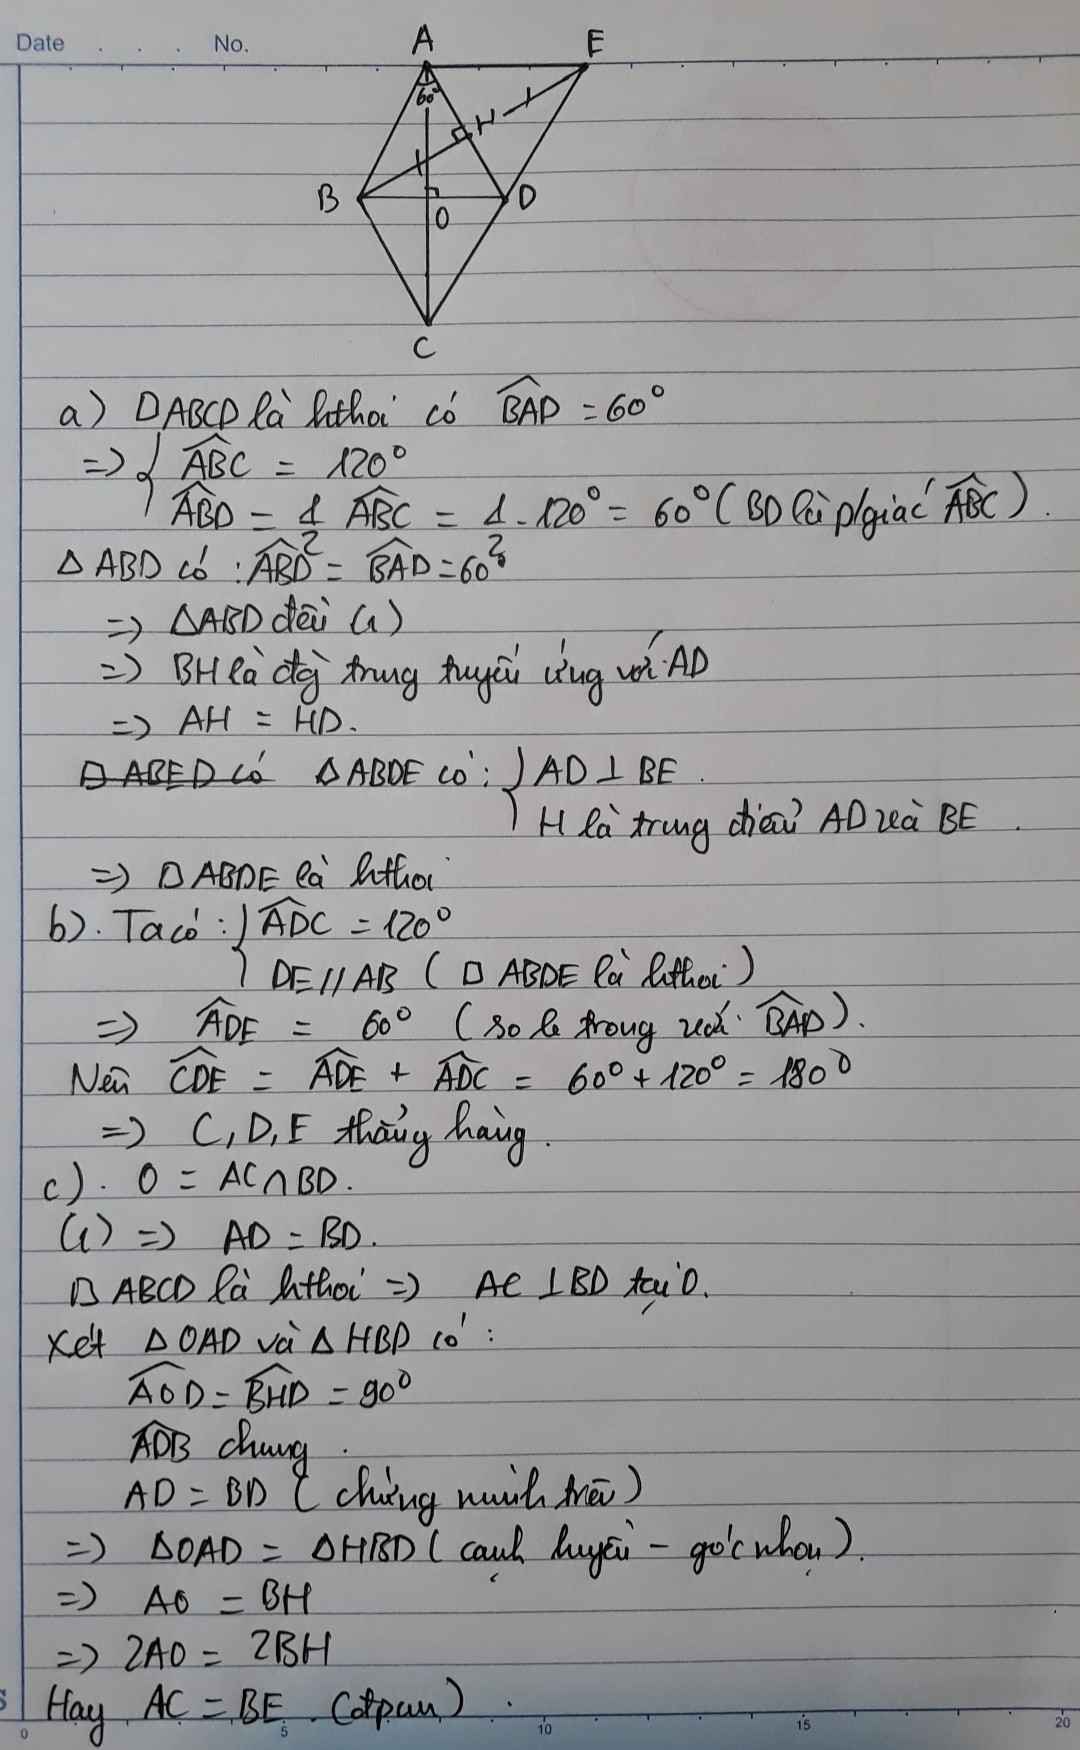 Date . . . No.
A E
60°
H
B D
O
C
a) □ABCD là hthoi có BAD = 60°
=> { ABC = 120°
ABD = 1/2 ABC = 1/2 . 120° = 60° (BD là p/giác ABC).
Δ ABD có : ABD = BAD = 60°
=> ΔABD đều (1)
=> BH là đg trung tuyến ứng với AD
=> AH = HD.
□ ABED có Δ ABDE có : { AD ⊥ BE .
H là trung điểm AD và BE .
=> □ ABDE là hthoi
b). Ta có : { ADC = 120°
DE // AB ( □ ABDE là hthoi )
=> ADE = 60° ( so le trong với BAD ).
Nên CDE = ADE + ADC = 60° + 120° = 180°
=> C, D, E thẳng hàng .
c) . O = AC ∩ BD.
(1) => AD = BD.
□ ABCD là hthoi => AC ⊥ BD tại O.
Xét Δ OAD và Δ HBD có :
AOD = BHD = 90°
ADB chung .
AD = BD ( chứng minh trên )
=> ΔOAD = ΔHBD ( cạnh huyền - góc nhọn ).
=> AO = BH
=> 2AO = 2BH
Hay AC = BE . (đpcm) .
0 5 10 15 20